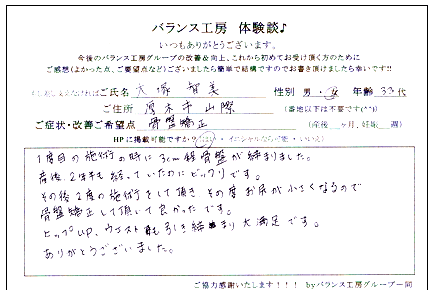 バランス工房 体験談♪
いつもありがとうございます。
今後のバランス工房グループの改善&向上、これから初めてお受け頂く方のために
ご感想(よかった点、ご要望点など)ございましたら簡単で結構ですのでお書き頂けましたら幸いです!!
もし差し支えなければご氏名 大塚 智美 性別 男・女 年齢 33代
ご住所 厚木市山際 (番地以下は不要です(^^))
ご症状・改善ご希望点 骨盤矯正 (産後 ヶ月、妊娠 週)
HPに掲載可能ですか?(はい・イニシャルなら可能・いいえ)
1度目の施術の時に3cm程骨盤が締まりました。
産後、2年半も経っていたのにビックリです。
その後2度の施術をして頂き、その度お尻が小さくなるので
骨盤矯正して頂いて良かったです。
ヒップUP、ウエストも引き締まり大満足です。
ありがとうございました。
ご協力感謝いたします!!! byバランス工房グループ一同